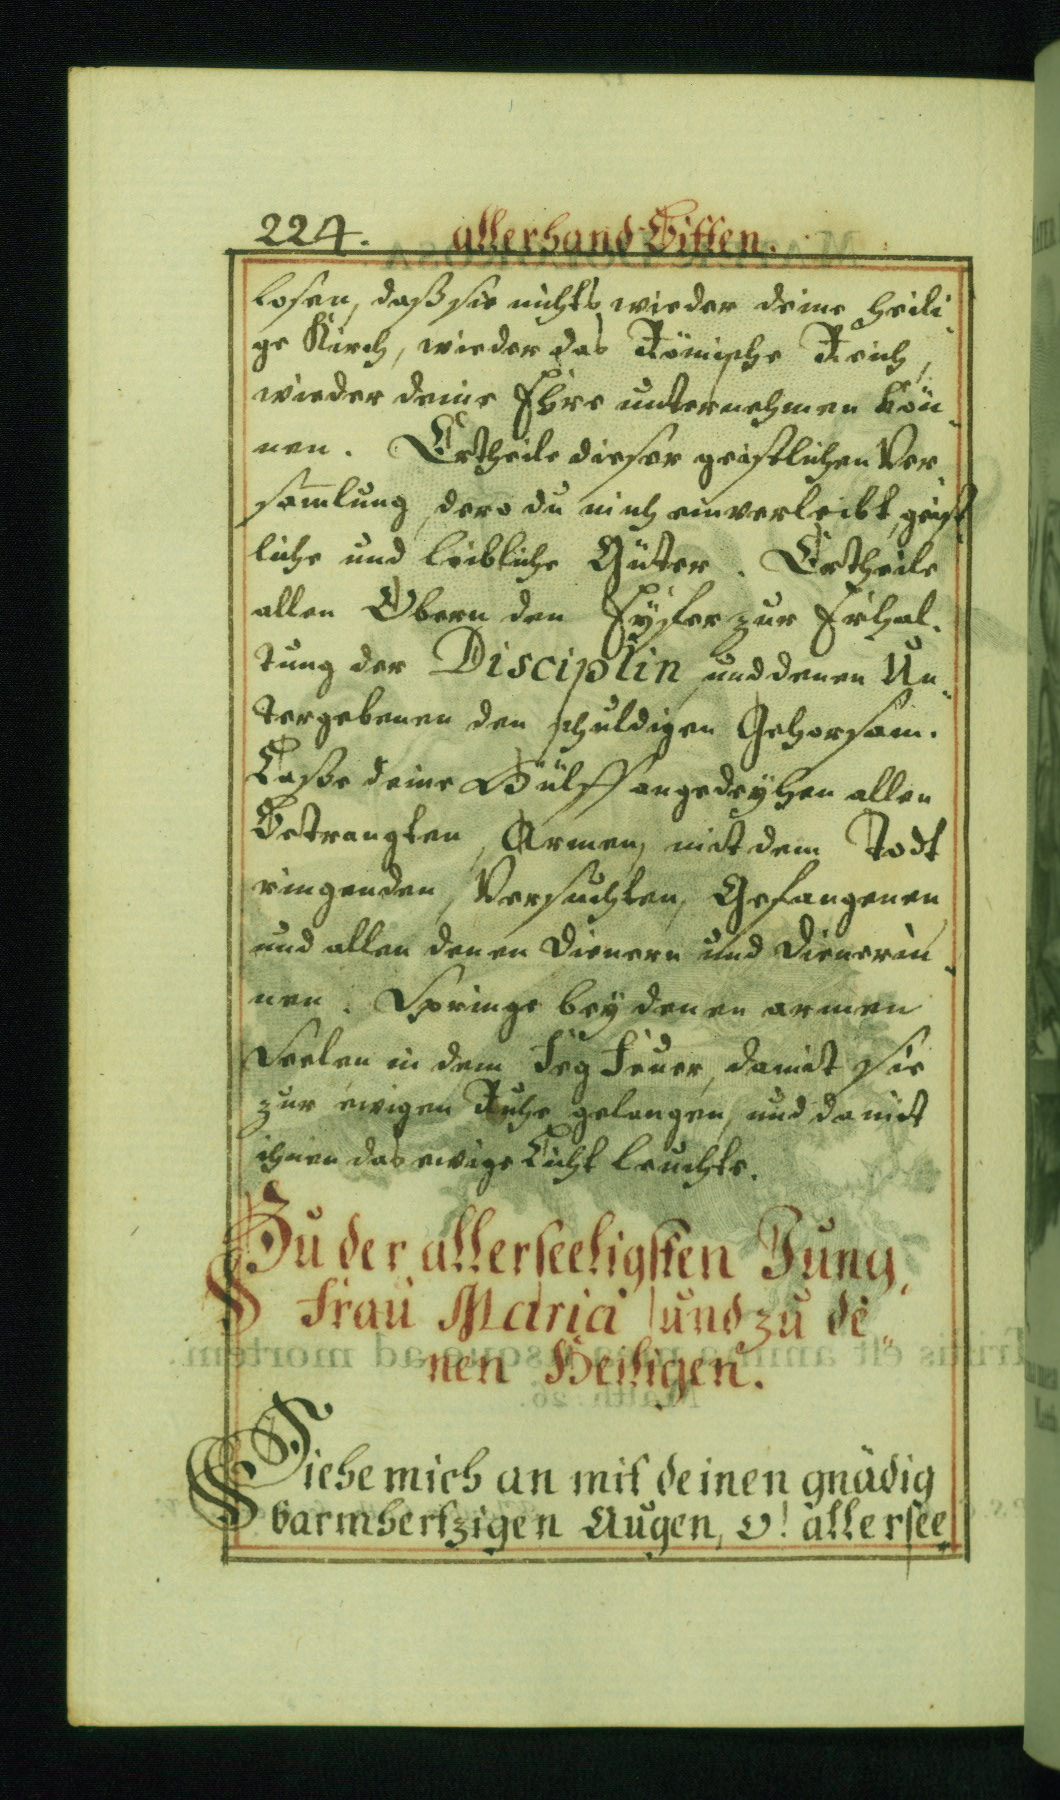 224. allerhand Bitten.
losen, daß sie nichts wieder deine heili„
ge Kirch, wieder das Römische Reich,
wieder deine Ehre unternehmen kön„
nen. Ertheile dieser geistlichen Ver„
sam̄lung, dero du mich einverleibt, geist„
liche und leibliche Güter. Ertheile
allen Obern den Eyfer zur Erhal„
tung der Disciplin, und denen Un„
tergebenen den schuldigen Gehorsam.
Laße deine Hülff angedeyhen allen
Betrangten, Armen, mit dem Todt
ringenden, Versuchten, Gefangenen
und allen denen Dienern und Dienerin„
nen. Springe bey denen armen
Seelen in dem Feg Feuer, damit sie
zur ewigen Ruhe gelangen, und damit
ihnen das ewige Licht leuchte.
Zu der allerseeligsten Jung„
frau Maria und zu de„
nen Heiligen.
Siehe mich an mit deinen gnädig
barmhertzigen Augen, O! allersee„